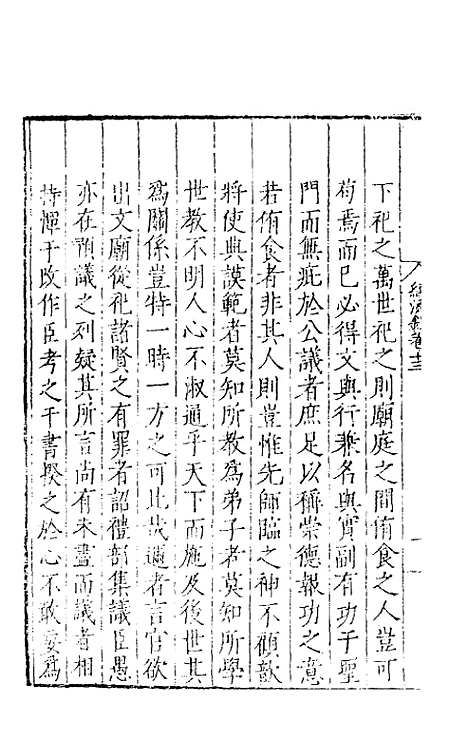 經濟錄卷十三
下祀之萬世祀之則廟庭之間侑食之人豈可
苟焉而已必得文與行兼名與實副有功于聖
門而無疵於公議者庶足以稱崇德報功之意
若侑食者非其人則豈惟先師臨之神不顧歆
將使典謨範者莫知所教為弟子者莫知所學
世教不明人心不淑通乎天下而施及後世其
為關係豈特一時一方之可比哉邇者言官欲
出文廟從祀諸賢之有罪者詔禮部集議臣愚
亦在預議之列疑其所言尚有未盡而議者相
持憚于改作臣考之于書揆之於心不敢妄為